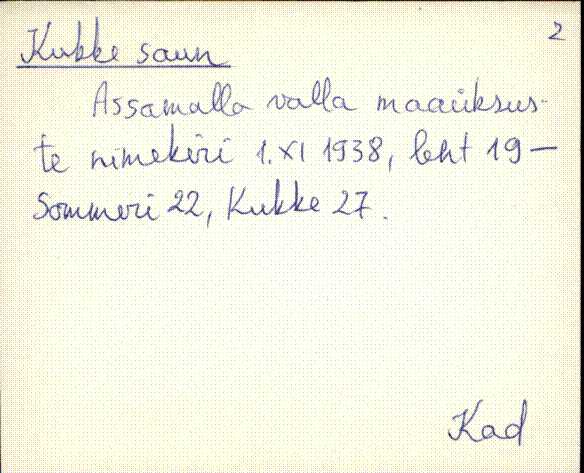 2
Kukke saun
Assamalla valla maaüksus-
te nimekiri 1.XI 1938, leht 19 —
Sommeri 22, Kukke 27.
Kad